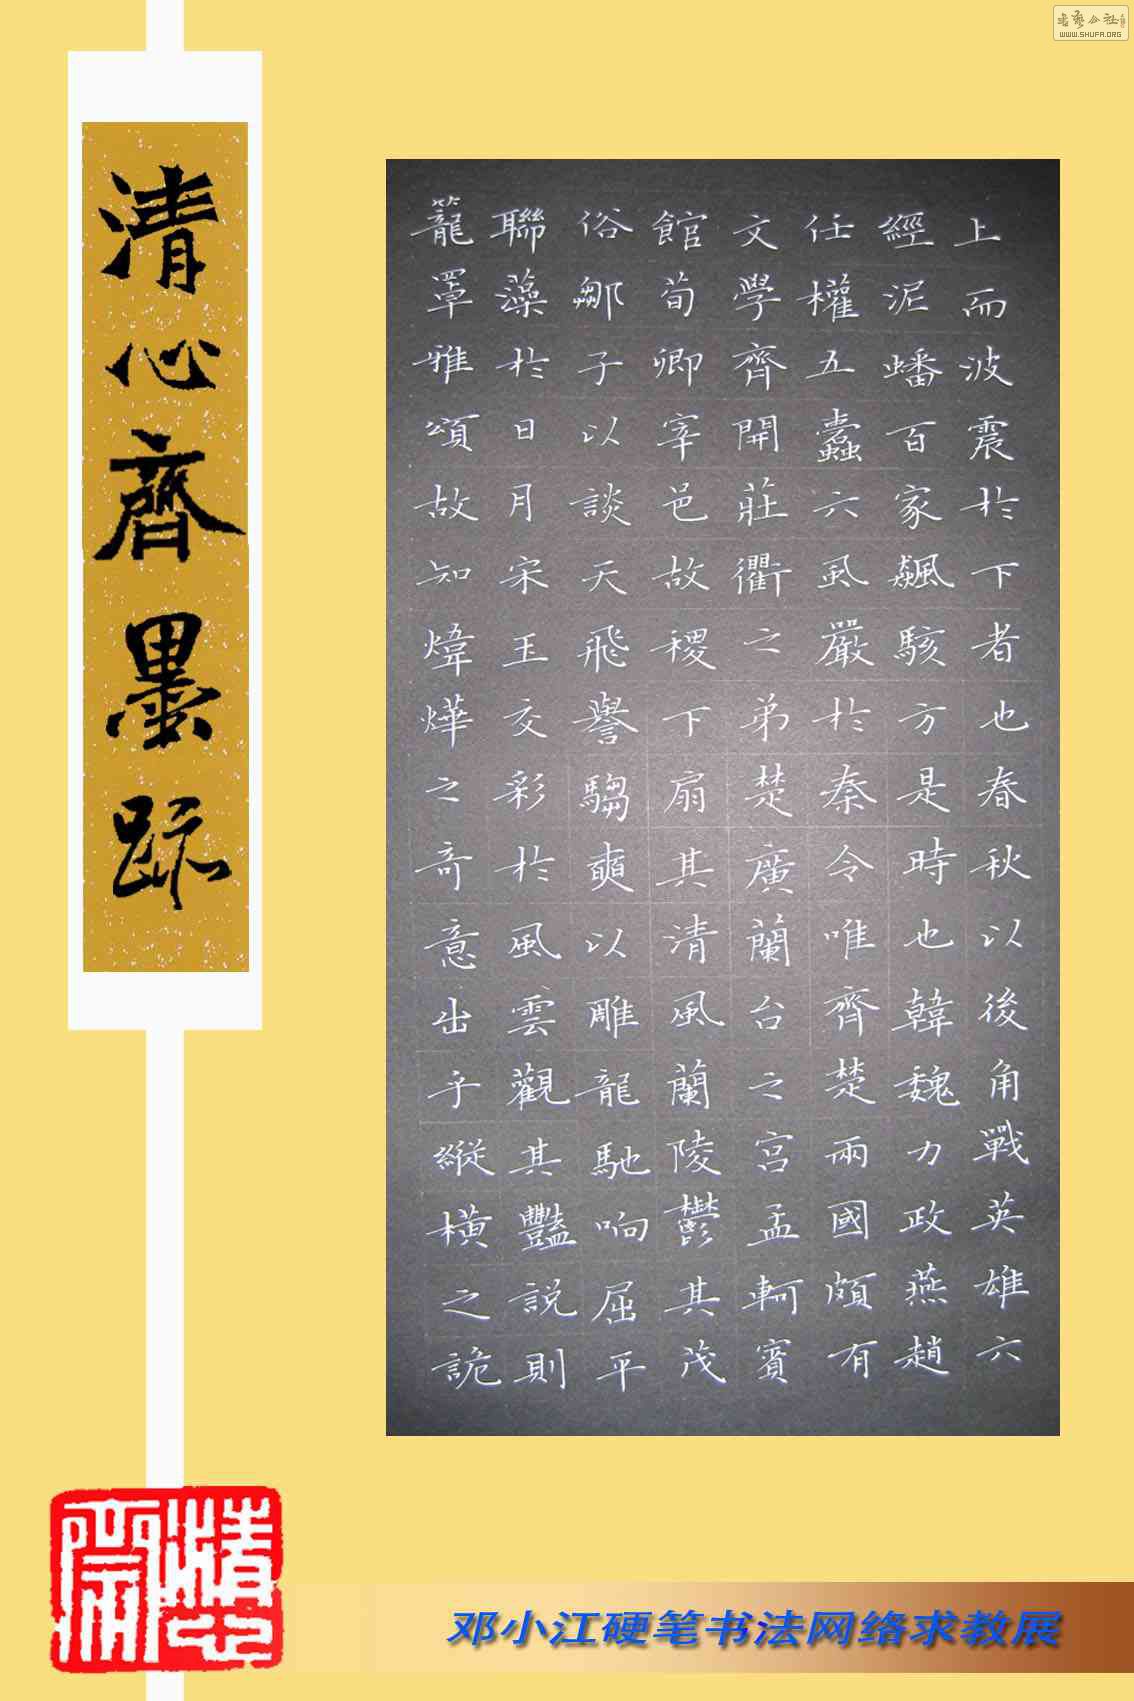 书艺公社
WWW.SHUFA.ORG
清心齋墨跡
上而波震於下者也春秋以後角戰英雄六
經泥蟠百家飆駭方是時也韓魏力政燕趙
任權五蠹六虱嚴於秦令唯齊楚兩國頗有
文學齊開莊衢之弟楚廣蘭台之宮孟軻賓
館荀卿宰邑故稷下扇其清風蘭陵鬱其茂
俗鄒子以談天飛譽騶奭以雕龍馳响屈平
聯藻於日月宋玉交彩於風雲觀其豔説則
籠罩雅頌故知煒燁之奇意出乎縱橫之詭
清心齋
邓小江硬笔书法网络求教展